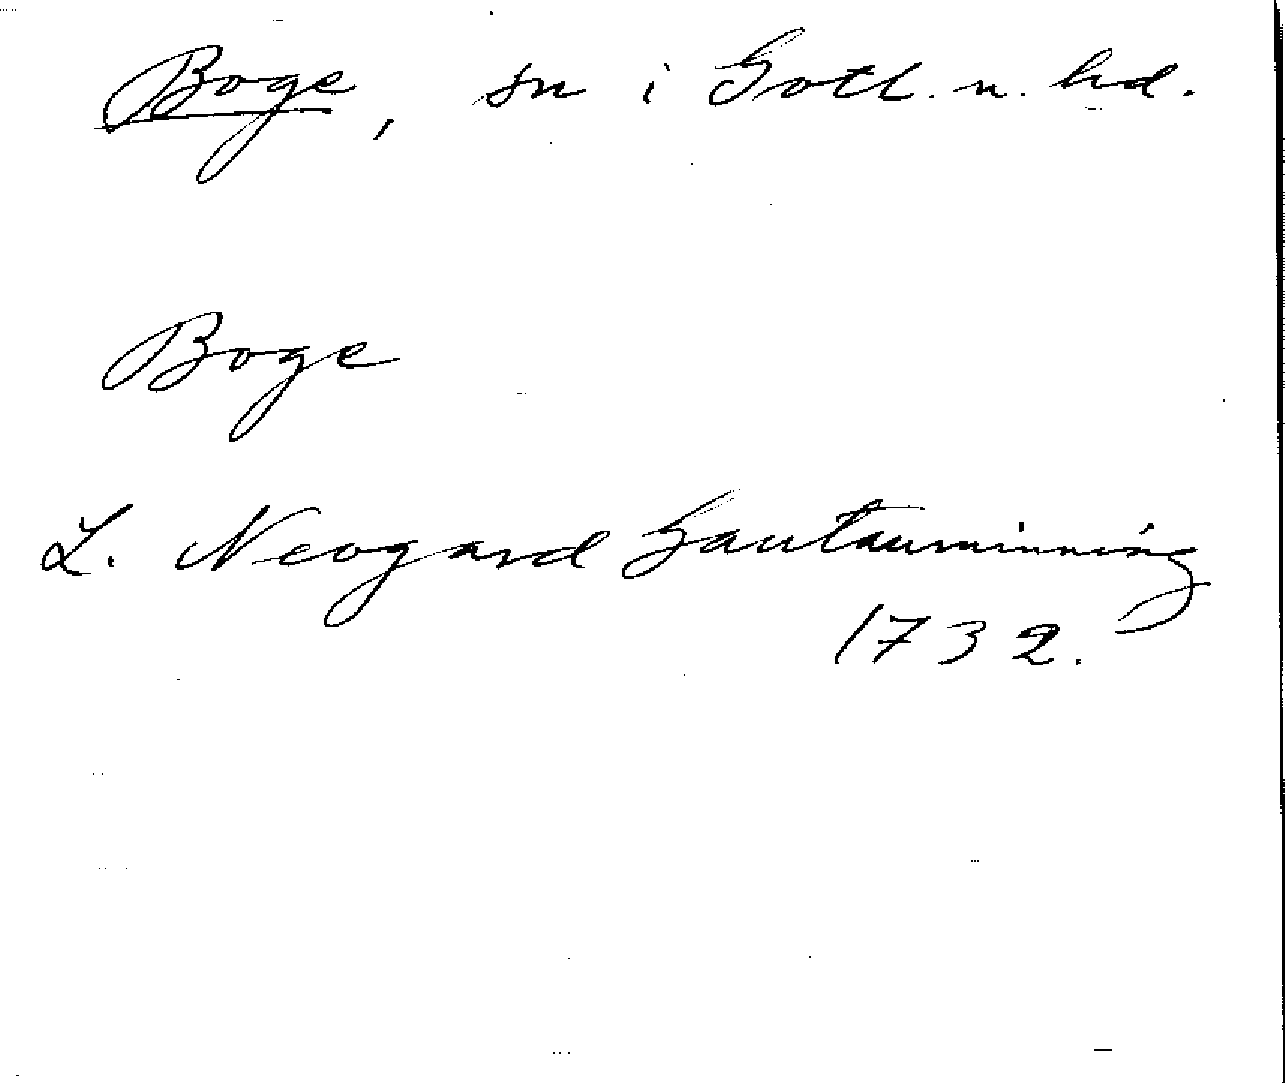 Boge, sn i Gotl. n. hd.
Boge
L. Neogard Gautauminning
1732.